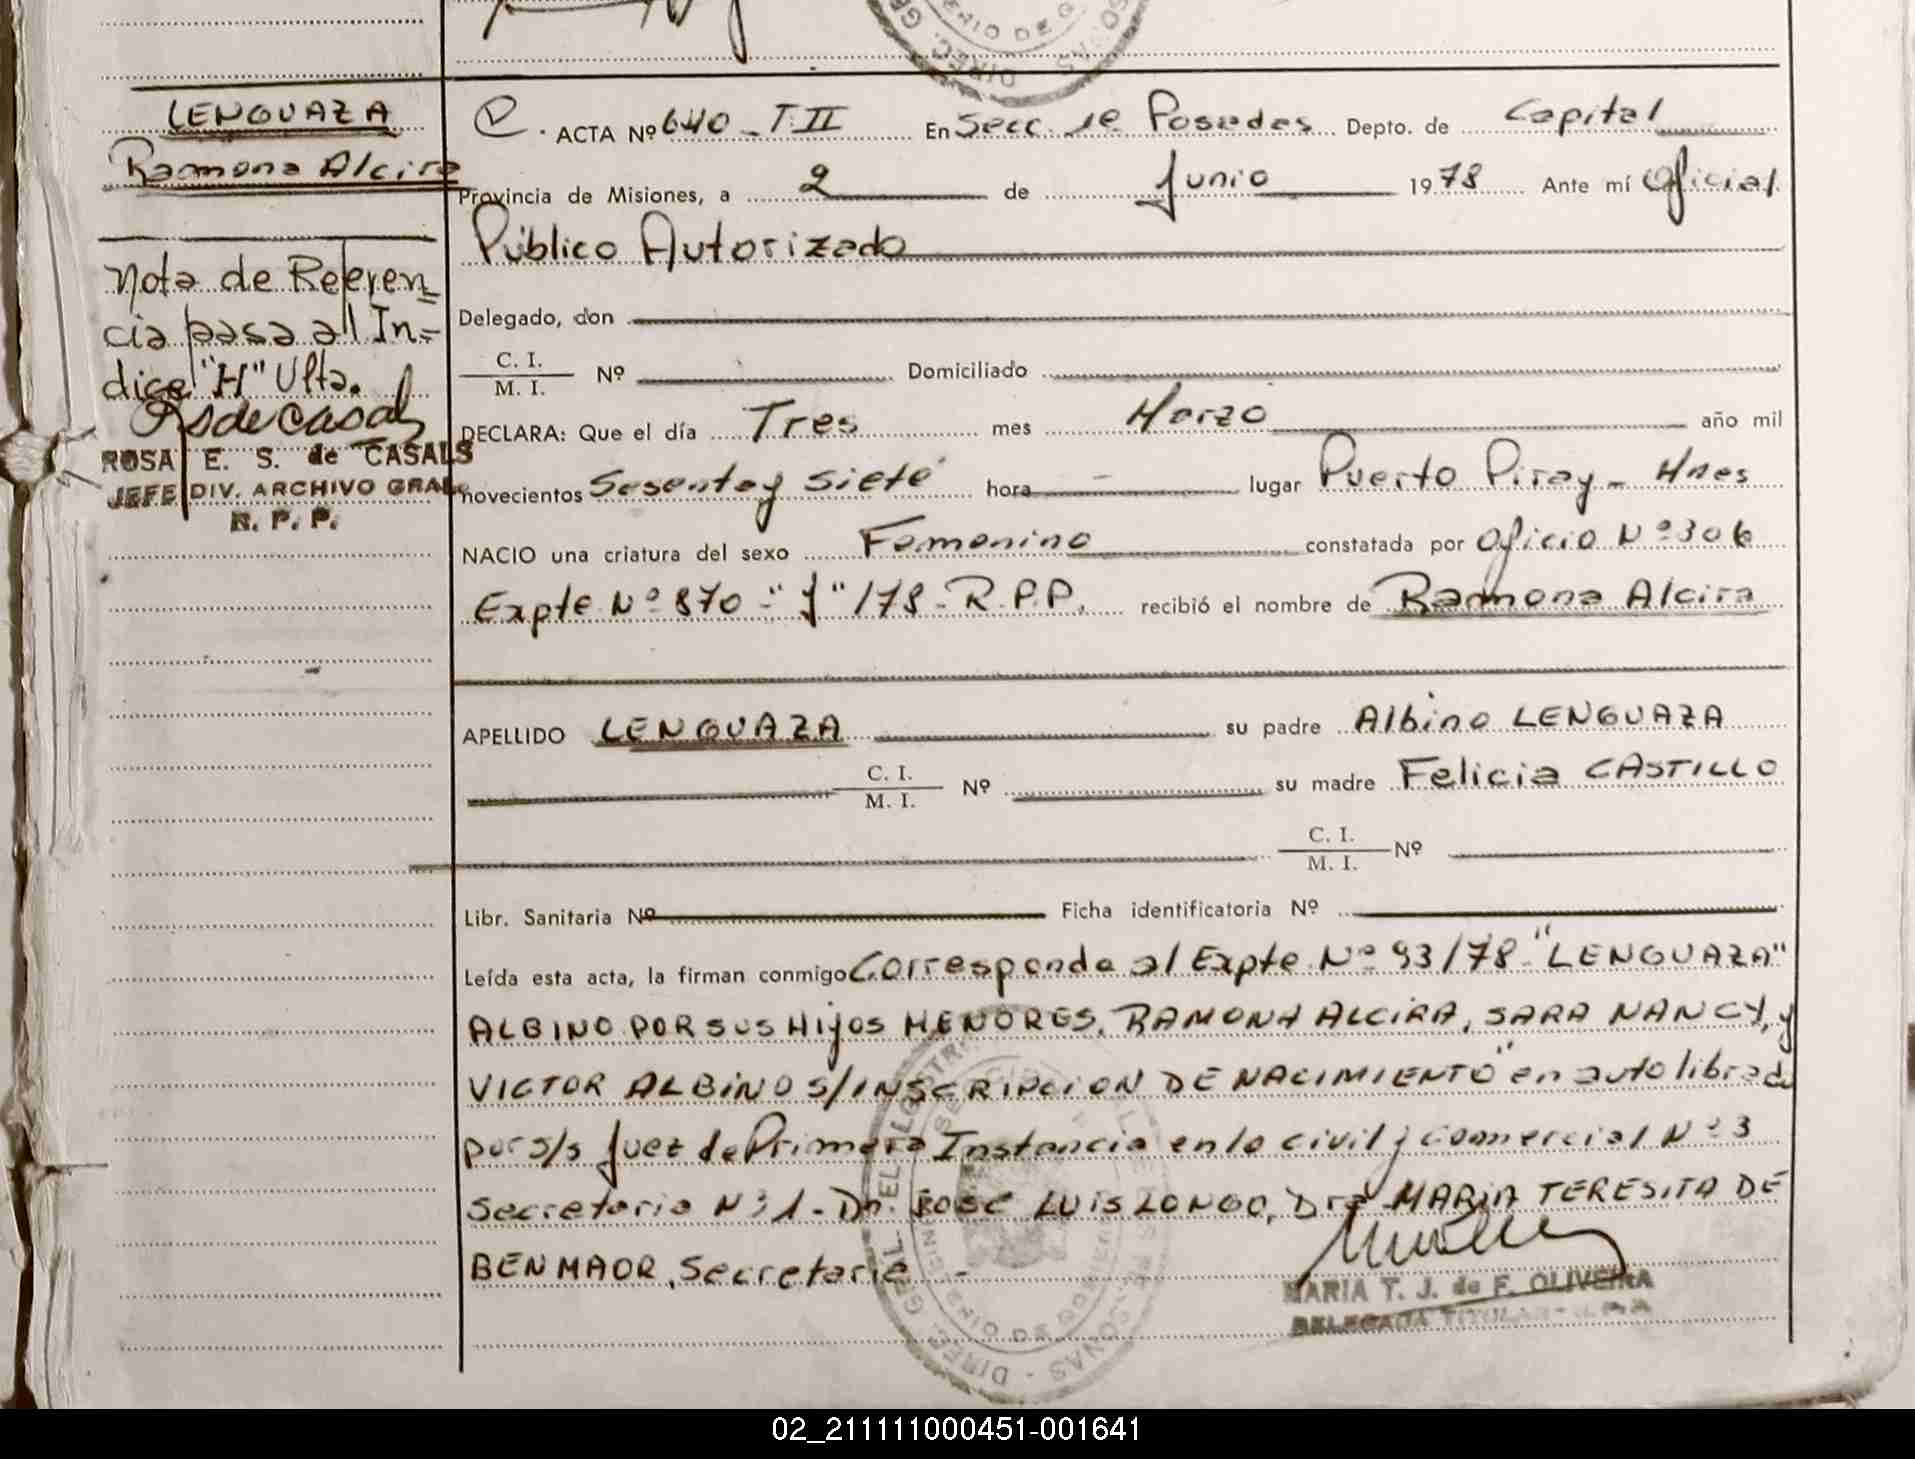 LENGUAZA
Ramona Alcira
Nota de Referen=
cia pasa al In=
dice "H" Ulta.
Rsdecasals
ROSA E. S. de CASALS
JEFE DIV. ARCHIVO GRAL.
R. P. P.
ACTA Nº 640 - T II En Secc. 1ª Posadas Depto. de Capital
Provincia de Misiones, a 2 de Junio 1978 Ante mí Oficial
Público Autorizado
Delegado, don
C. I. / M. I. Nº Domiciliado
DECLARA: Que el día Tres mes Marzo año mil
novecientos Sesenta y Siete hora - lugar Puerto Piray - Mnes
NACIO una criatura del sexo Femenino constatada por Oficio Nº 306
Expte Nº 870 - "J" /78 - R.P.P. recibió el nombre de Ramona Alcira
APELLIDO LENGUAZA su padre Albino LENGUAZA
C. I. / M. I. Nº su madre Felicia CASTILLO
C. I. / M. I. Nº
Libr. Sanitaria Nº Ficha identificatoria Nº
Leída esta acta, la firman conmigo Corresponde al Expte Nº 93/78 - "LENGUAZA"
ALBINO POR SUS HIJOS MENORES, RAMONA ALCIRA, SARA NANCY, y
VICTOR ALBINO S/INSCRIPCION DE NACIMIENTO" en auto librado
por s/s Juez de Primera Instancia en lo civil y Comercial Nº 3
Secretaria Nº 1 - Dr. JOSE LUIS LONGO, Dra MARIA TERESITA DE
BENMAOR, Secretaria -
MARIA T. J. de F. OLIVEIRA
DELEGADA TITULAR
02_211111000451-001641